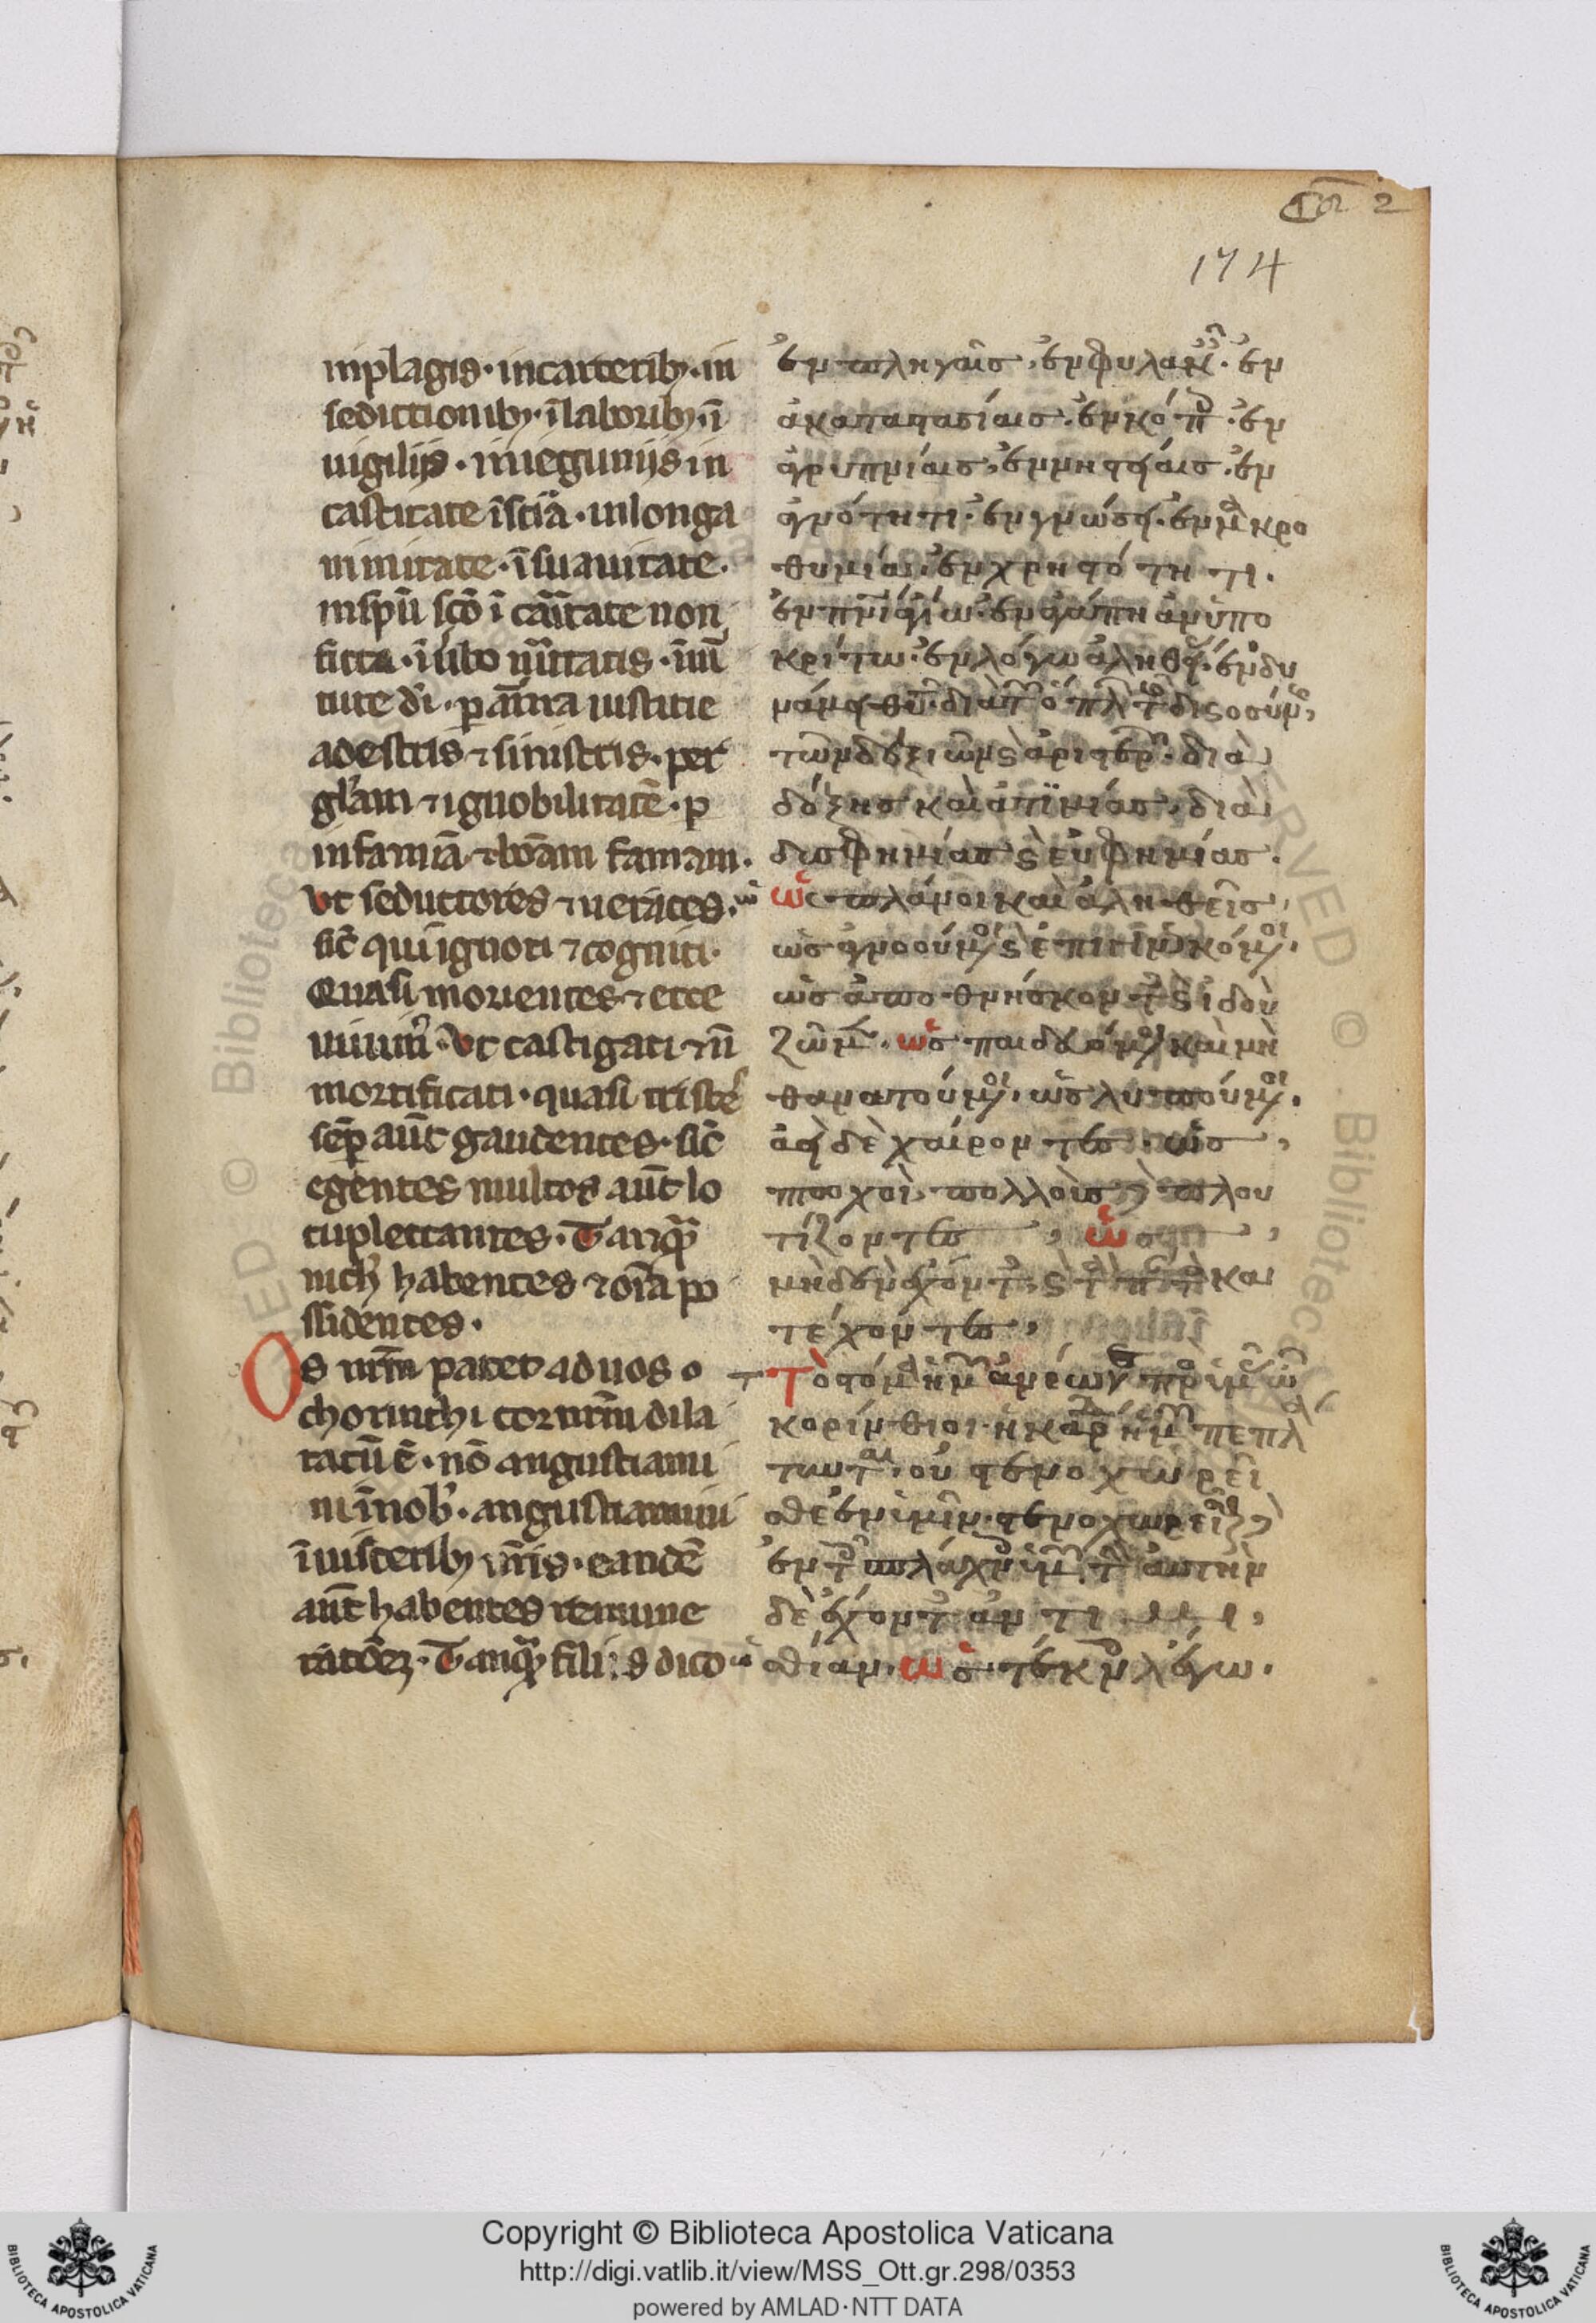 Co 2
174
inplagis · incarceribꝫ · in
seductionibꝫ · ĩlaboribꝫ · ĩ
uigilijs · inieguniis in
castitate ĩsciã · inlonga
nimitate · ĩsuauitate ·
inspũ scõ ĩ caritate non
ficta · ĩuerbo ueritatis · ĩuir
tute dĩ · ꝑ arma iustitie
adextris ⁊ sinistris · per
gl̃am ⁊ ignobilitatẽ · ꝑ
infamiã ⁊ bõam famam ·
Vt seductores ⁊ ueraces ·
sic̃ qui ignoti ⁊ cogniti ·
Quasi morientes ⁊ ecce
uiuim᷒ · Vt castigati ⁊ ñ
mortificati · quasi triste᷒
sẽꝑ aũt gaudentes · sic̃
egentes multos aũt lo
cuplectantes · Tanqᷓ
nich̃ habentes ⁊ om̃ia po
ssidentes ·
Os nr̃m patet aduos o
chorinthi cor nr̃m dila
tatũ ẽ · nõ angustiami
ni ĩnob᷒ · angustiamini
ĩuisceribꝫ ur̃is · eandẽ
aũt habentes remune
ratõeꝫ · Tanqᷓ filiis dico
ἐν πληγαῖσ · ἐν φυλακ · ἐν
ἀκαταστασίαισ · ἐν κόπ · ἐν
ἀγρυπνίαισ · ἐν νηστείαισ · ἐν
ἁγνότητι · ἐν γνώσει · ἐν μακρο
θυμία · ἐν χρηστότητι ·
ἐν πνὶ ἁγίω · ἐν ἀγάπη ἀνυπο
κρίτω · ἐν λόγω ἀληθεί · ἐν δυ
νάμει θῦ · διὰ τ ὅπλ τ δικαιοσύν
τῶν δεξιῶν ϗ ἀριστερ · διὰ
δόξησ καὶ ἀτιμίασ · διὰ
δυσφημίασ ϗ εὐφημίασ ·
ὡς πλάνοι καὶ ἀληθεῖσ ·
ὡσ ἀγνοούμ ϗ ἐπιγινωσκόμ ·
ὡσ ἀποθνήσκοντ ϗ ἰδοὺ
ζῶμ · ὡσ παιδευόμ καὶ μὴ
θανατούμ · ὡσ λυπούμ ·
ἀεὶ δὲ χαίροντεσ · ὡσ
πτωχοὶ πολλοὺσ δὲ πλου
τίζοντεσ · ὡσ
μηδὲν ἔχοντ ϗ τ π κα
τέχοντεσ ·
Τὸ στόμ ἡμ ἀνέωγ πρ ὑμ ὦ
κορίνθιοι · ἡ καρ ἡμ πεπλ
τυντ · οὐ στενοχωρεῖ
σθε ἐν ἡμῖν · στενοχωρεῖσ δ
ἐν τ σπλάχν ὑμ · τ αυτὴν
δὲ ἔχοντ ἀντιμι
σθίαν · ὡσ τέκν λέγω ·
Copyright © Biblioteca Apostolica Vaticana
http://digi.vatlib.it/view/MSS_Ott.gr.298/0353
powered by AMLAD·NTT DATA